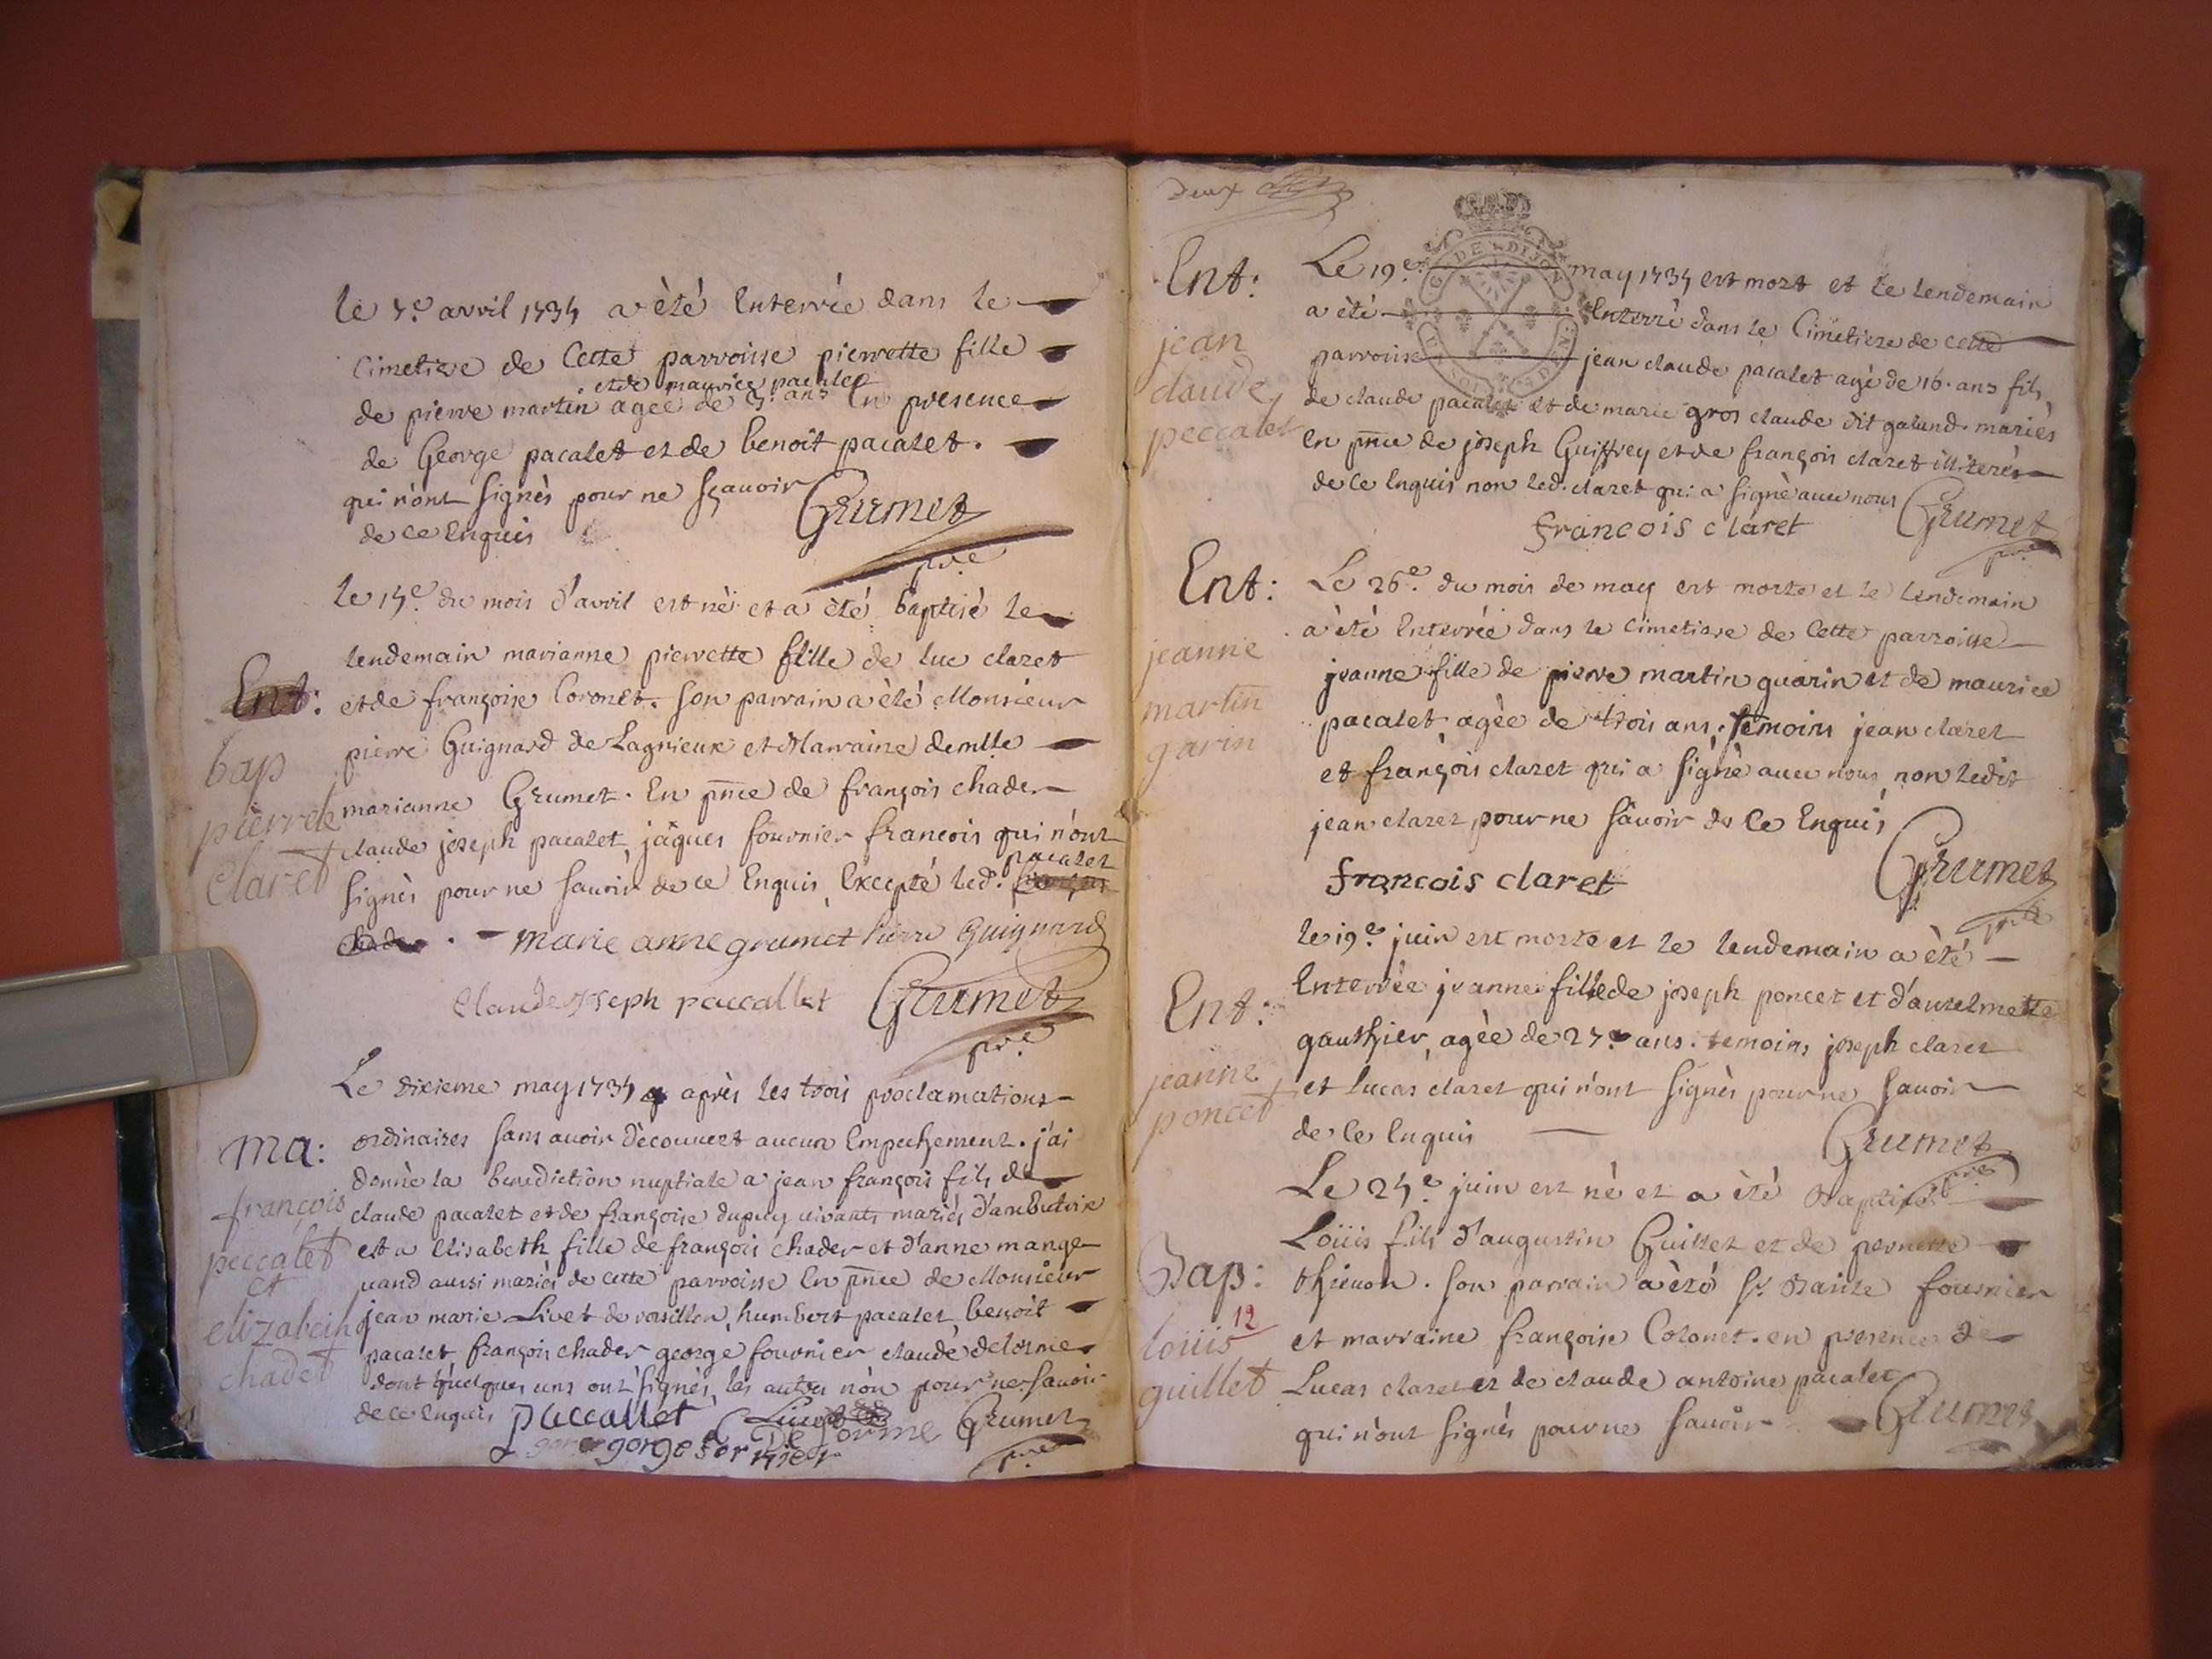 le 7.e avril 1734 a èté Enterrée dans le
Cimetiere de Cette parroisse pierrette fille
et de maurice pacalet
de pierre martin agée de 5. ans En presence
de George pacalet et de benoît pacalet.
qui n'ont signés pour ne sçauoir
de ce Enquis
Grumet
pre
le 15e du mois d'avril est nè et a èté baptisé le
lendemain marianne pierrette fille de luc claret
Ent: et de françoise Coronet. son parrain a èté Monsieur
pierre Guignard de Lagnieux et Marraine demlle
bap
pierrete
Claret
marianne Grumet. En pnce de françois chader
claude joseph pacalet, jâques fournier francois qui n'ont
pacalet
signès pour ne sauoir de ce Enquis, Excepté led.
marie anne grumet pierre Guignard
Claude joseph paccallet Grumet
pre
Le dixieme may 1734 après les trois proclamations
ma: ordinaires sans auoir dècouuert aucun Empechement. j'ai
donnè la benediction nuptiale a jean françois fils de
françois
peccalet
et
elizabeth
chadet
claude pacalet et de françoise dupuy viuants mariés d'ambutrix
et a Elisabeth fille de françois chader et d'anne mange
uand aussi mariès de cette parroisse En pnce de Monsieur
jean marie Liuet de rosillon, humbert pacalet benoît
pacalet françois chader george fournier claude delorme
dont quelques uns ont signès, les autres nòn pour ne sauoir
de ce Enquis paccallet Liuet De lorme Grumet
gorge fornier pre
Deux
Ent: Le 19e may 1734 est mort et le lendemain
a èté Enterrè dans le Cimetiere de cette
jean
claude
peccalet
parroisse jean claude pacalet agè de 16. ans fils,
de claude pacalet et de marie gros claude dit galand. mariès
En pnce de joseph Guiffrey et de françois claret illiterès
de ce Enquis non led. claret qui a signè auec nous Grumet
francois claret pre
Ent: Le 26e. du mois de may est morte et le lendemain
a èté Enterrèe dans le cimetiere de Cette parroisse
jeanne
martin
garin
jeanne fille de pierre martin guarin et de maurice
pacalet agèe de trois ans, temoins jean claret
et françois claret qui a signè auec nous, non ledit
jean claret pour ne sauoir de Ce Enquis
francois claret Grumet
pre
le 19e juin est morte et le lendemain a èté
Ent: Enterrèe jeanne fille de joseph poncet et d'anzelmette
gauthier, agèe de 27 ans. temoins joseph claret
jeanne
poncet
et lucas claret qui n'ont signès pour ne sauoir
de Ce Enquis Grumet
pre
Le 24e juin est nè et a èté Baptisé
Loüis fils d'augustin Guillet et de pernette
Bap: thieuon. son parrain a èté sr. fournier
12
loüis
guillet
et marraine françoise Colonet. en presence de
Lucas claret et de claude antoine pacalet
qui n'ont signès pour ne sauoir Grumet